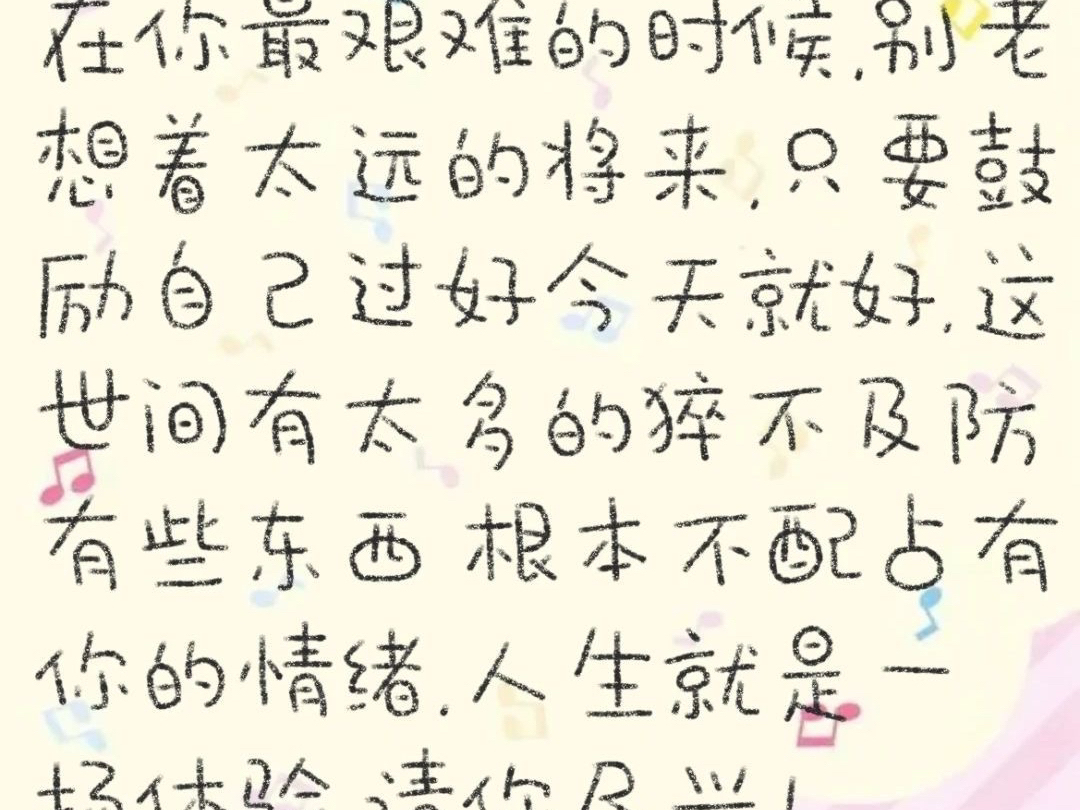 在你最艰难的时候.别老
想着太远的将来.只要鼓
励自己过好今天就好.这
世间有太多的猝不及防
有些东西 根本不配占有
你的情绪.人生就是一
场体验 请你尽兴!